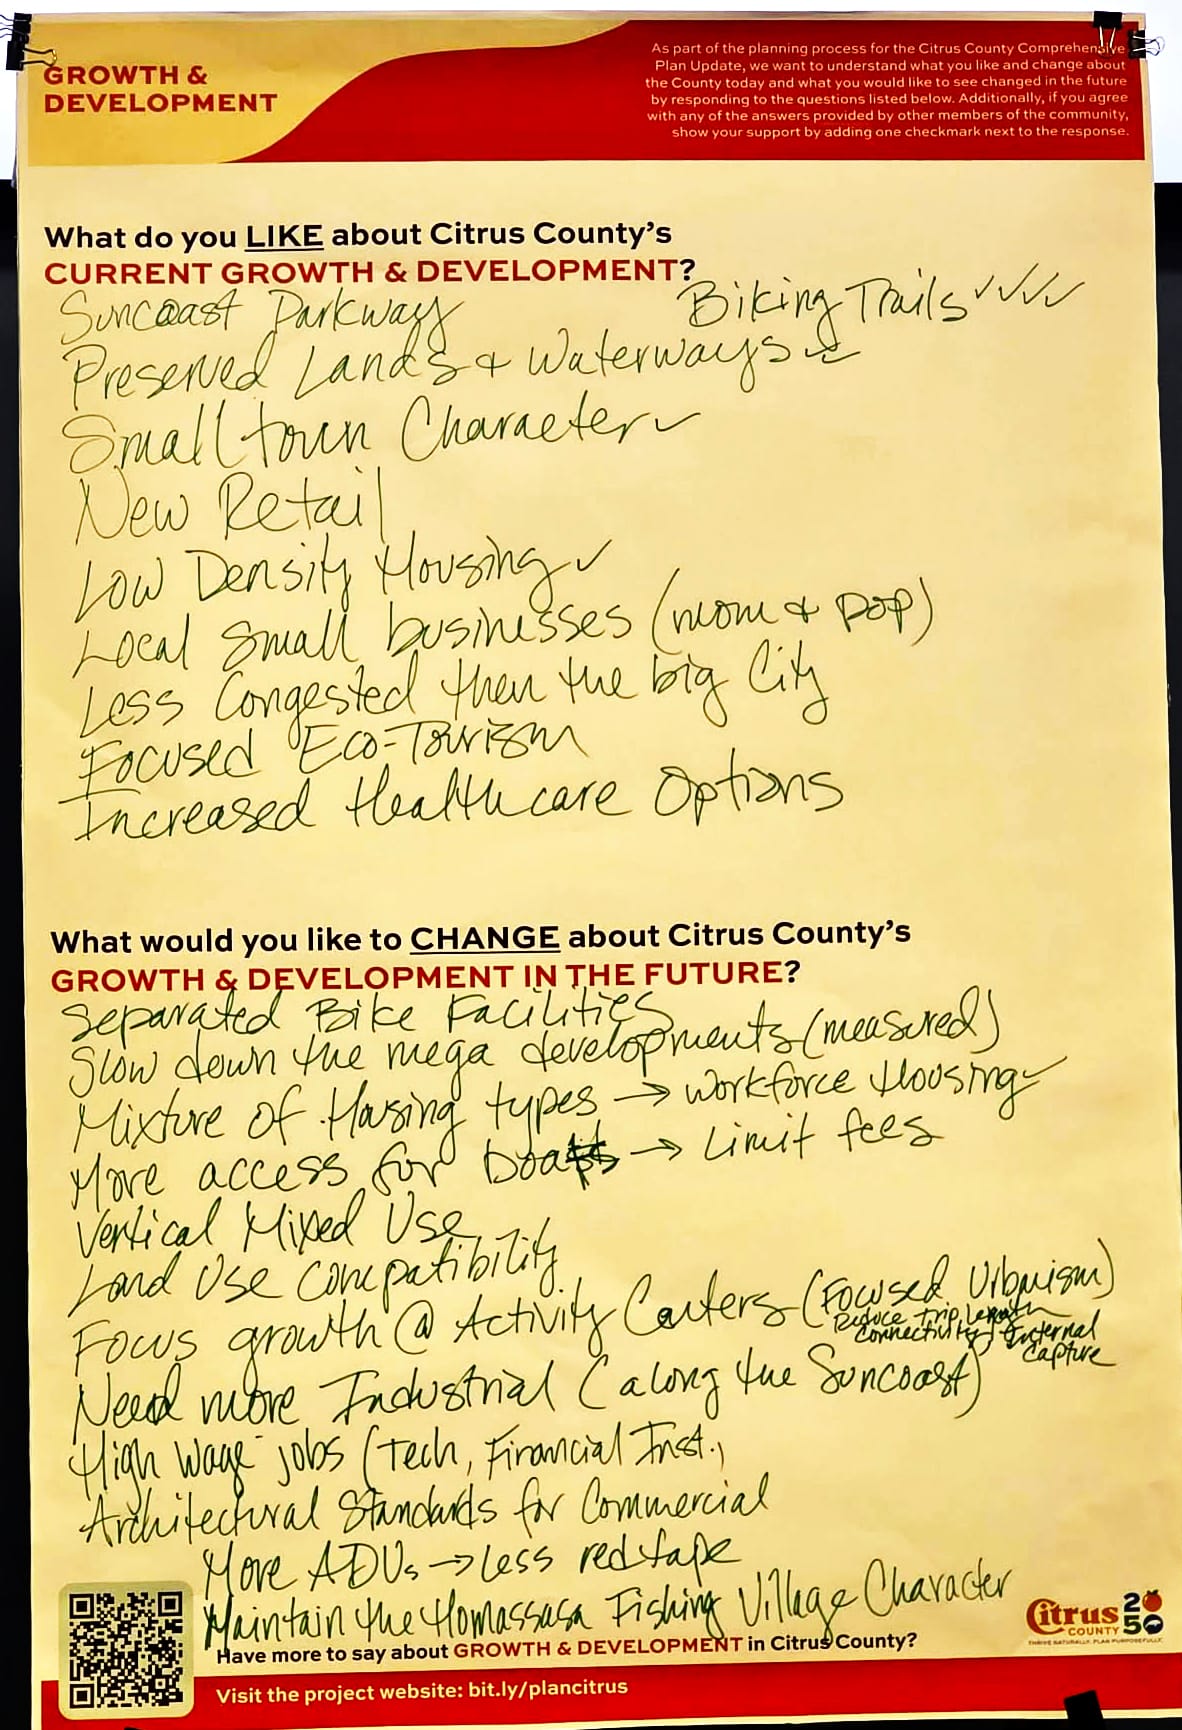 GROWTH &
DEVELOPMENT
As part of the planning process for the Citrus County Comprehensive
Plan Update, we want to understand what you like and change about
the County today and what you would like to see changed in the future
by responding to the questions listed below. Additionally, if you agree
with any of the answers provided by other members of the community,
show your support by adding one checkmark next to the response.
What do you LIKE about Citrus County's
CURRENT GROWTH & DEVELOPMENT?
Suncoast Parkway
Biking Trails ✓✓✓✓
Preserved Lands & Waterways ✓✓
Small town Character ✓
New Retail
Low Density Housing ✓
Local Small businesses (mom & pop)
Less Congested then the big City
Focused Eco-Tourism
Increased Healthcare Options
What would you like to CHANGE about Citrus County's
GROWTH & DEVELOPMENT IN THE FUTURE?
Separated Bike Facilities
Slow down the mega developments (measured)
Mixture of Housing types → workforce Housing ✓
More access for boats → Limit fees
Vertical Mixed Use
Land Use Compatibility
Focus growth @ Activity Centers (Focused Urbanism)
Reduce trip length
connectivity, Internal
Capture
Need more Industrial (along the Suncoast)
High Wage jobs (Tech, Financial Inst.,
Architectural Standards for Commercial
More ADUs → Less red tape
Maintain the Homassasa Fishing Village Character
Have more to say about GROWTH & DEVELOPMENT in Citrus County?
Visit the project website: bit.ly/plancitrus
Citrus
COUNTY
2050
THRIVE NATURALLY. PLAN PURPOSEFULLY.